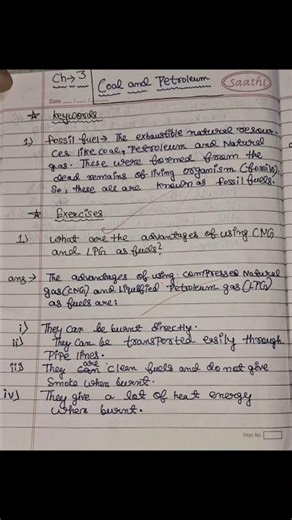 Ch→3
Coal and Petroleum
Saathi
Date
★ Keywords
1) Fossil fuel→ The exhaustible natural resour-
ces like coal, Petroleum and Natural
gas. These were formed from the
dead remains of living organism (fossils).
So, these all are known as fossil fuels.
★ Exercises
1) What are the advantages of using CNG
and LPG as fuels?
ans→ The advantages of using compressed Natural
gas (CNG) and Liquified Petroleum gas (LPG)
as fuels are:
i) They can be burnt directly.
ii) They can be transported easily through
Pipe lines.
iii) They are clean fuels and do not give
Smoke when burnt.
iv) They give a lot of heat energy
when burnt.
Page No.